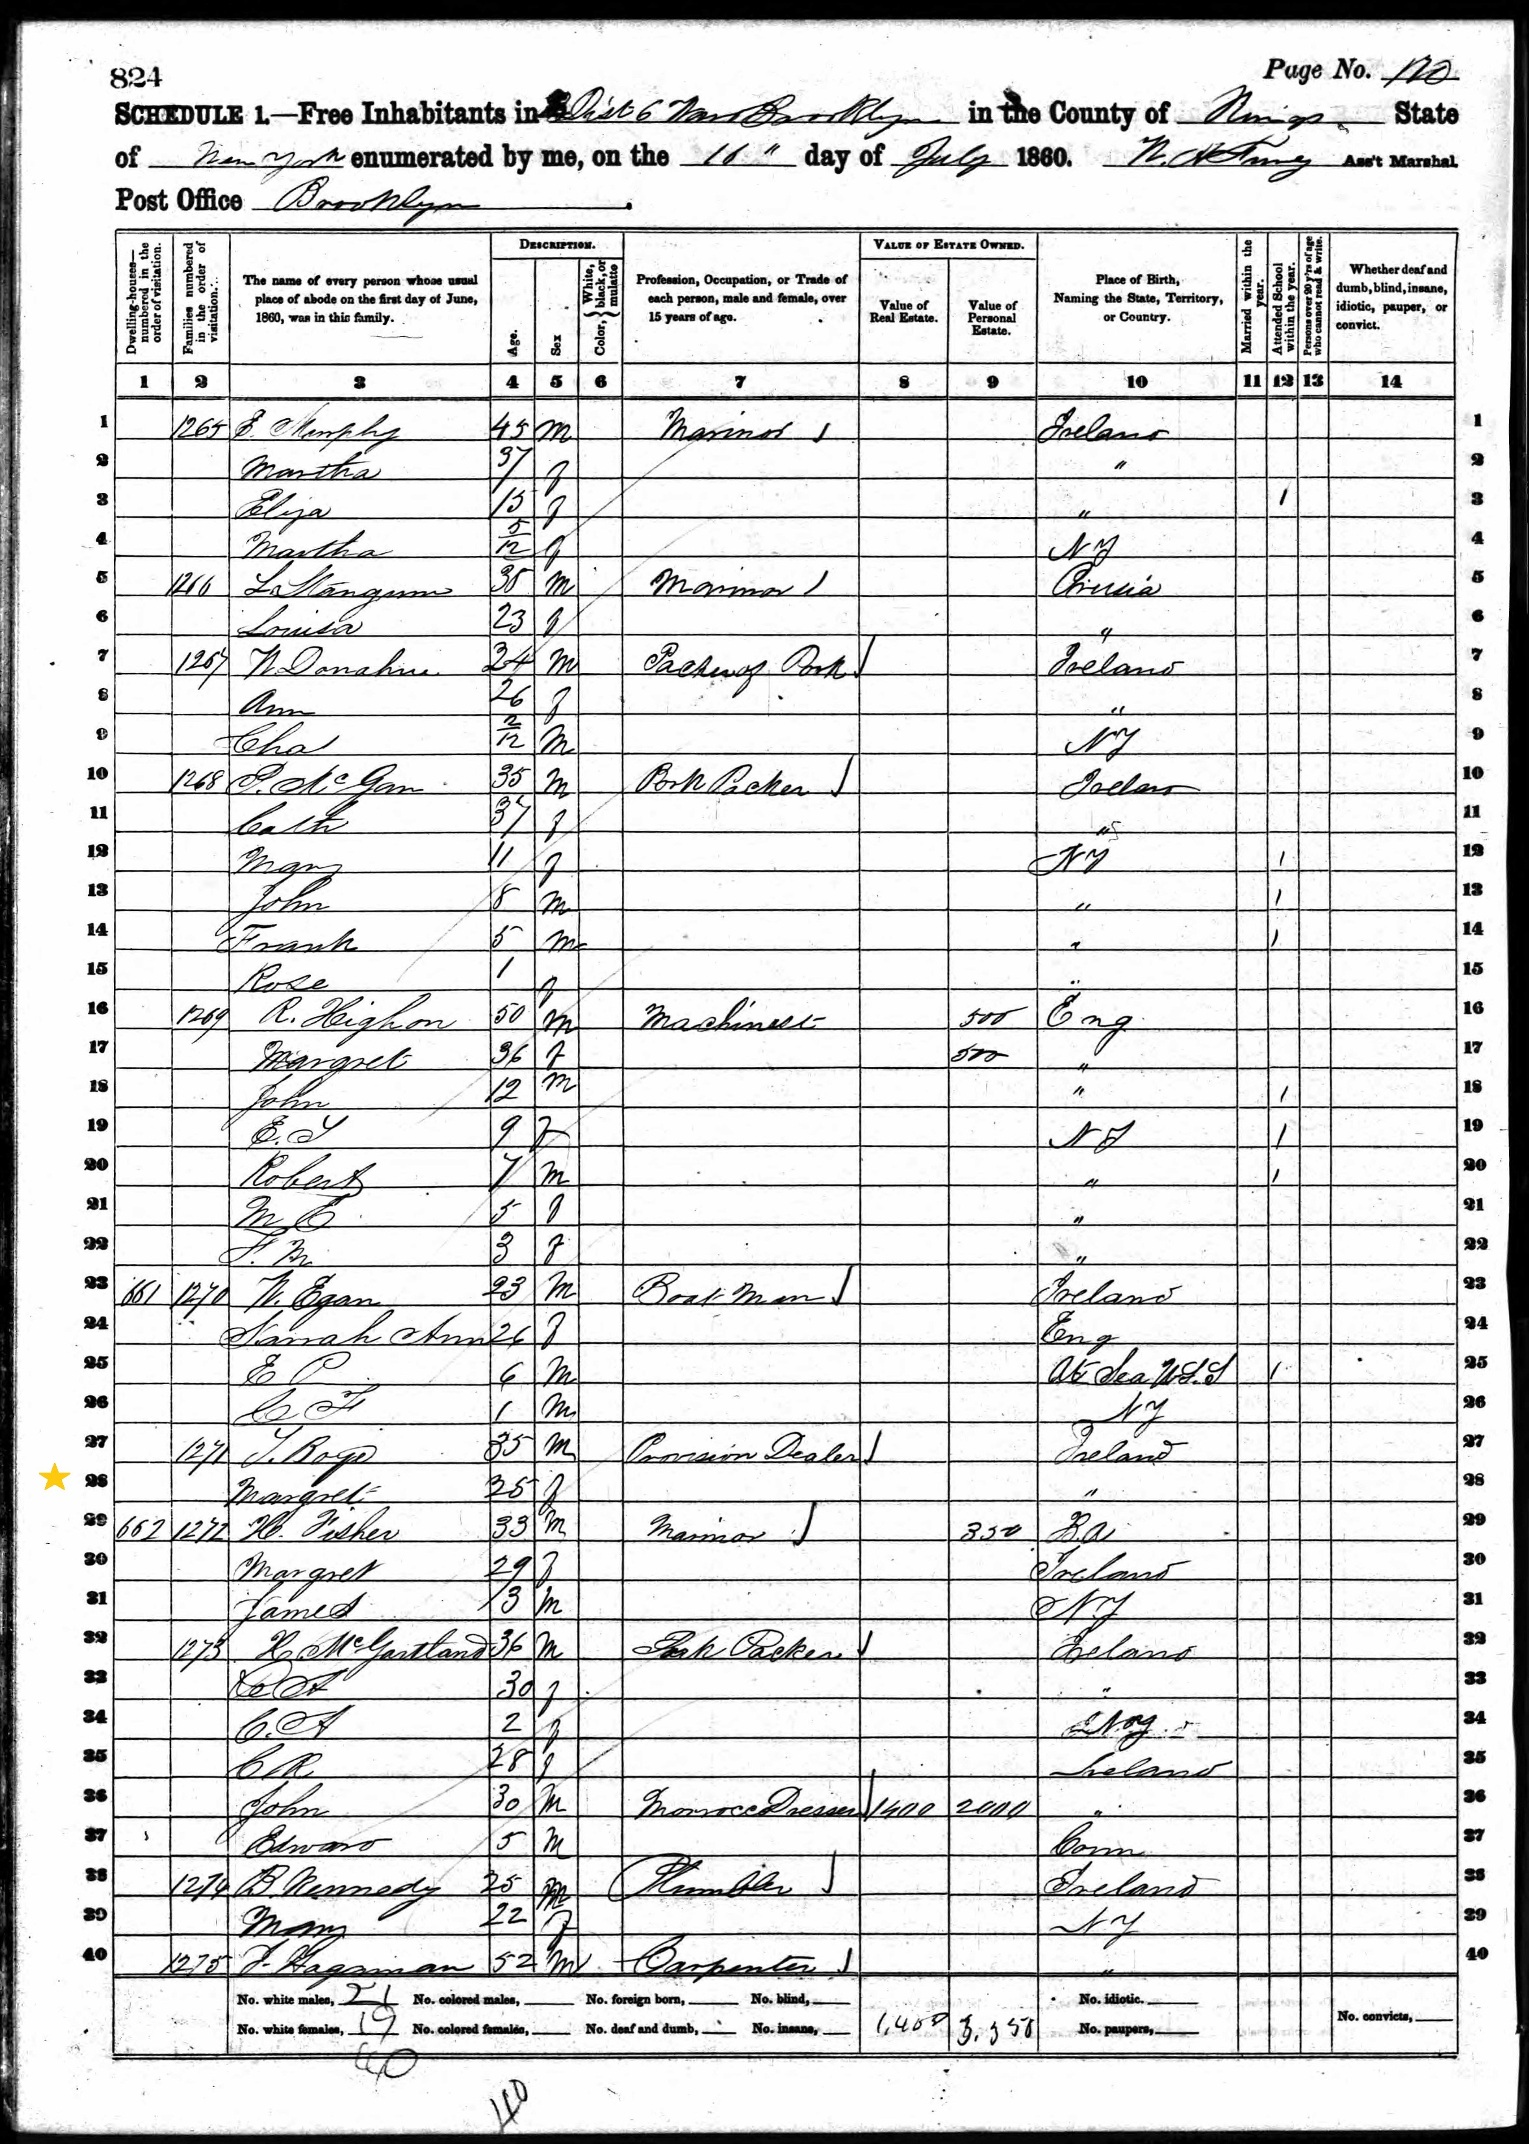 824
Page No. 120
SCHEDULE 1.—Free Inhabitants in Dist 6 Ward Brooklyn in the County of Kings State
of New York enumerated by me, on the 16" day of July 1860. Ass't Marshal.
Post Office Brooklyn.
Dwelling-houses—numbered in the order of visitation.
Families numbered in the order of visitation.
The name of every person whose usual place of abode on the first day of June, 1860, was in this family.
DESCRIPTION.
Age.
Sex
Color, { White, black, or mulatto
Profession, Occupation, or Trade of each person, male and female, over 15 years of age.
VALUE OF ESTATE OWNED.
Value of Real Estate.
Value of Personal Estate.
Place of Birth, Naming the State, Territory, or Country.
Married within the year.
Attended School within the year.
Persons over 20 y'rs of age who cannot read & write.
Whether deaf and dumb, blind, insane, idiotic, pauper, or convict.
1 2 3 4 5 6 7 8 9 10 11 12 13 14
1 1265 E. Murphy 45 m Marinor Ireland 1
2 Martha 37 f " 2
3 Eliza 15 f " 1 3
4 Martha 5/12 f NY 4
5 1266 35 m Marinor Prusia 5
6 Louisa 23 f " 6
7 1267 W Donahue 34 m Packer of Pork Ireland 7
8 Ann 26 f " 8
9 Cha 2/12 m NY 9
10 1268 P. McGan 35 m Pork Packer Ireland 10
11 Cath 37 f " 11
12 Mary 11 f NY 1 12
13 John 8 m " 1 13
14 Frank 5 m " 1 14
15 Rose 1 f " 15
16 1269 R. Highon 50 m Machinest 500 Eng 16
17 Margret 36 f 500 " 17
18 John 12 m " 1 18
19 E. J 9 f NY 1 19
20 Robert 7 m " 1 20
21 M E 5 f " 21
22 F. M 3 f " 22
23 661 1270 W. Egan 23 m Boat Man Ireland 23
24 Sarrah Ann 26 f Eng 24
25 E P 6 m At Sea U.S.S 1 25
26 C F 1 m NY 26
27 1271 35 m Provision Dealer Ireland 27
28 Margret 25 f " 28
29 662 1272 H. Fisher 33 m Marinor 350 29
30 Margret 29 f Ireland 30
31 James 13 m NY 31
32 1273 H McGartland 36 m Pork Packer Ireland 32
33 30 f " 33
34 C. A 2 f NY 34
35 C R 28 f Ireland 35
36 John 30 m Morrocco Dresser 1400 2000 " 36
37 Edward 5 m Conn 37
38 1274 B. Kennedy 25 m Plumber Ireland 38
39 Mary 22 f NY 39
40 1275 F. Hagaman 52 m Carpenter " 40
No. white males, 21 No. colored males, No. foreign born, No. blind, No. idiotic.
No. white females, 19 No. colored females, No. deaf and dumb, No. insane, 1,400 3,350 No. paupers, No. convicts,
40
40